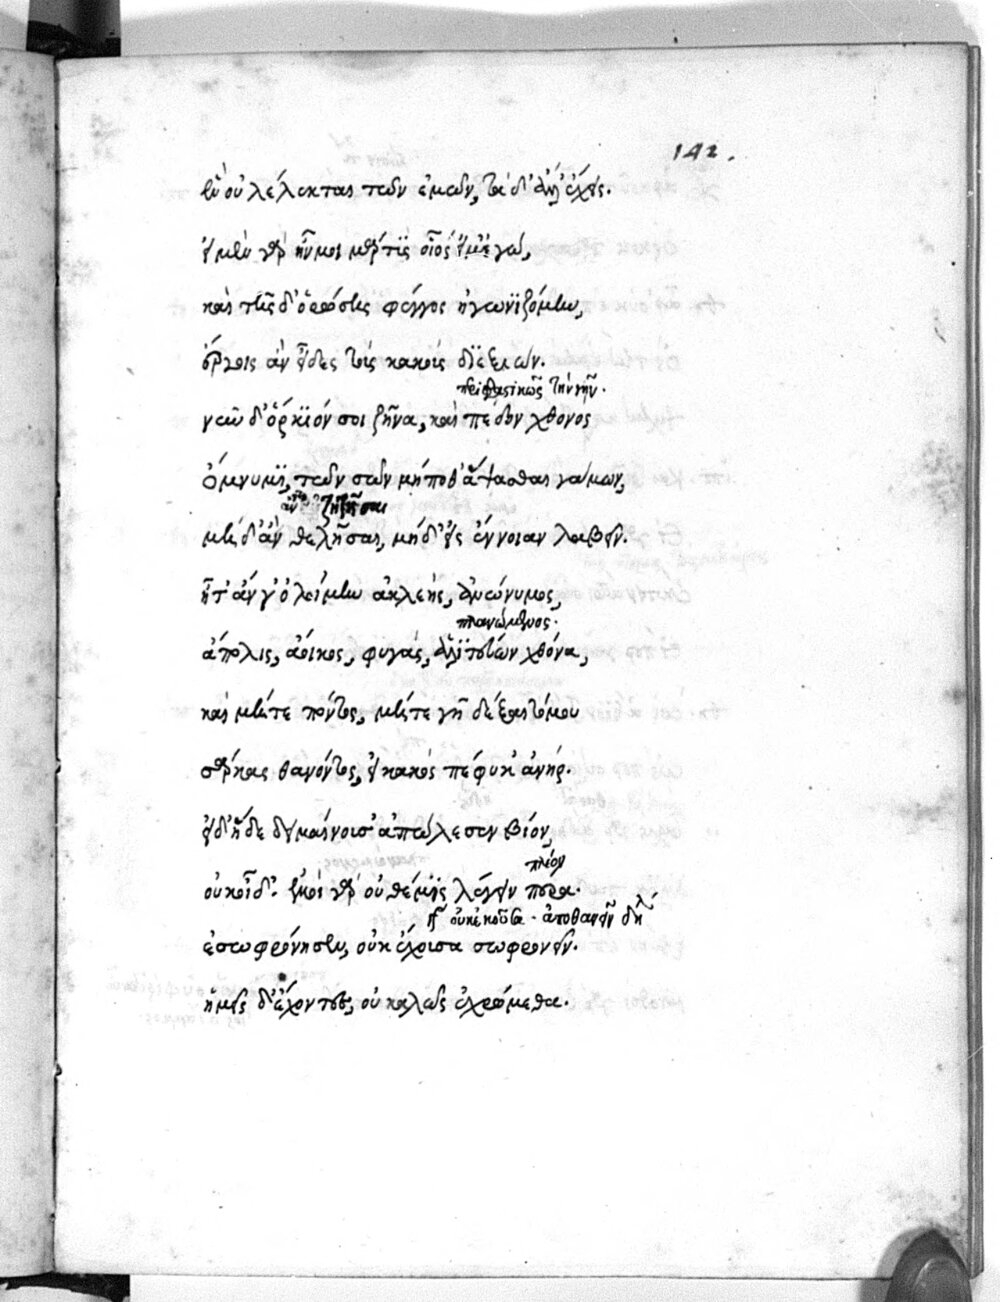 142.
ἓν οὐ λέλεκται τῶν ἐμῶν, τὰ δ' ἄλλ' ἔχεις.
εἰ μὲν γὰρ ἦν μοι μάρτυς οἷός εἰμ' ἐγώ,
καὶ τῆσδ' ὁρώσης φέγγος ἠγωνιζόμην,
ἔργοις ἂν εἶδες τοὺς κακοὺς διεξιών.
περιφραστικῶς τὴν γῆν.
νῦν δ' ὅρκιόν σοι ζῆνα, καὶ πέδον χθονὸς
ὄμνυμι, τῶν σῶν μήποθ' ἅψασθαι γάμων,
ζητῆσαι
μηδ' ἂν θελῆσαι, μηδ' εἰς ἔννοιαν λαβεῖν.
ἦ τ' ἄν γ' ὀλοίμην ἀκλεὴς, ἀνώνυμος,
πλανώμενος.
ἄπολις, ἄοικος, φυγὰς, ἀλητεύων χθόνα,
καὶ μήτε πόντος, μήτε γῆ δέξαιτό μου
σάρκας θανόντος, εἰ κακὸς πέφυκ' ἀνήρ.
εἰ δ' ἥδε δειμαίνουσ' ἀπώλεσεν βίον,
οὐκ οἶδ'. ἐμοὶ γὰρ οὐ θέμις λέγειν πέρα.
πλέον
οὐκ ἑκοῦσα. ἀποθανεῖν δηλ
ἐσωφρόνησεν, οὐκ ἔχουσα σωφρονεῖν.
ἡμεῖς δ' ἔχοντες, οὐ καλῶς ἐχρώμεθα.